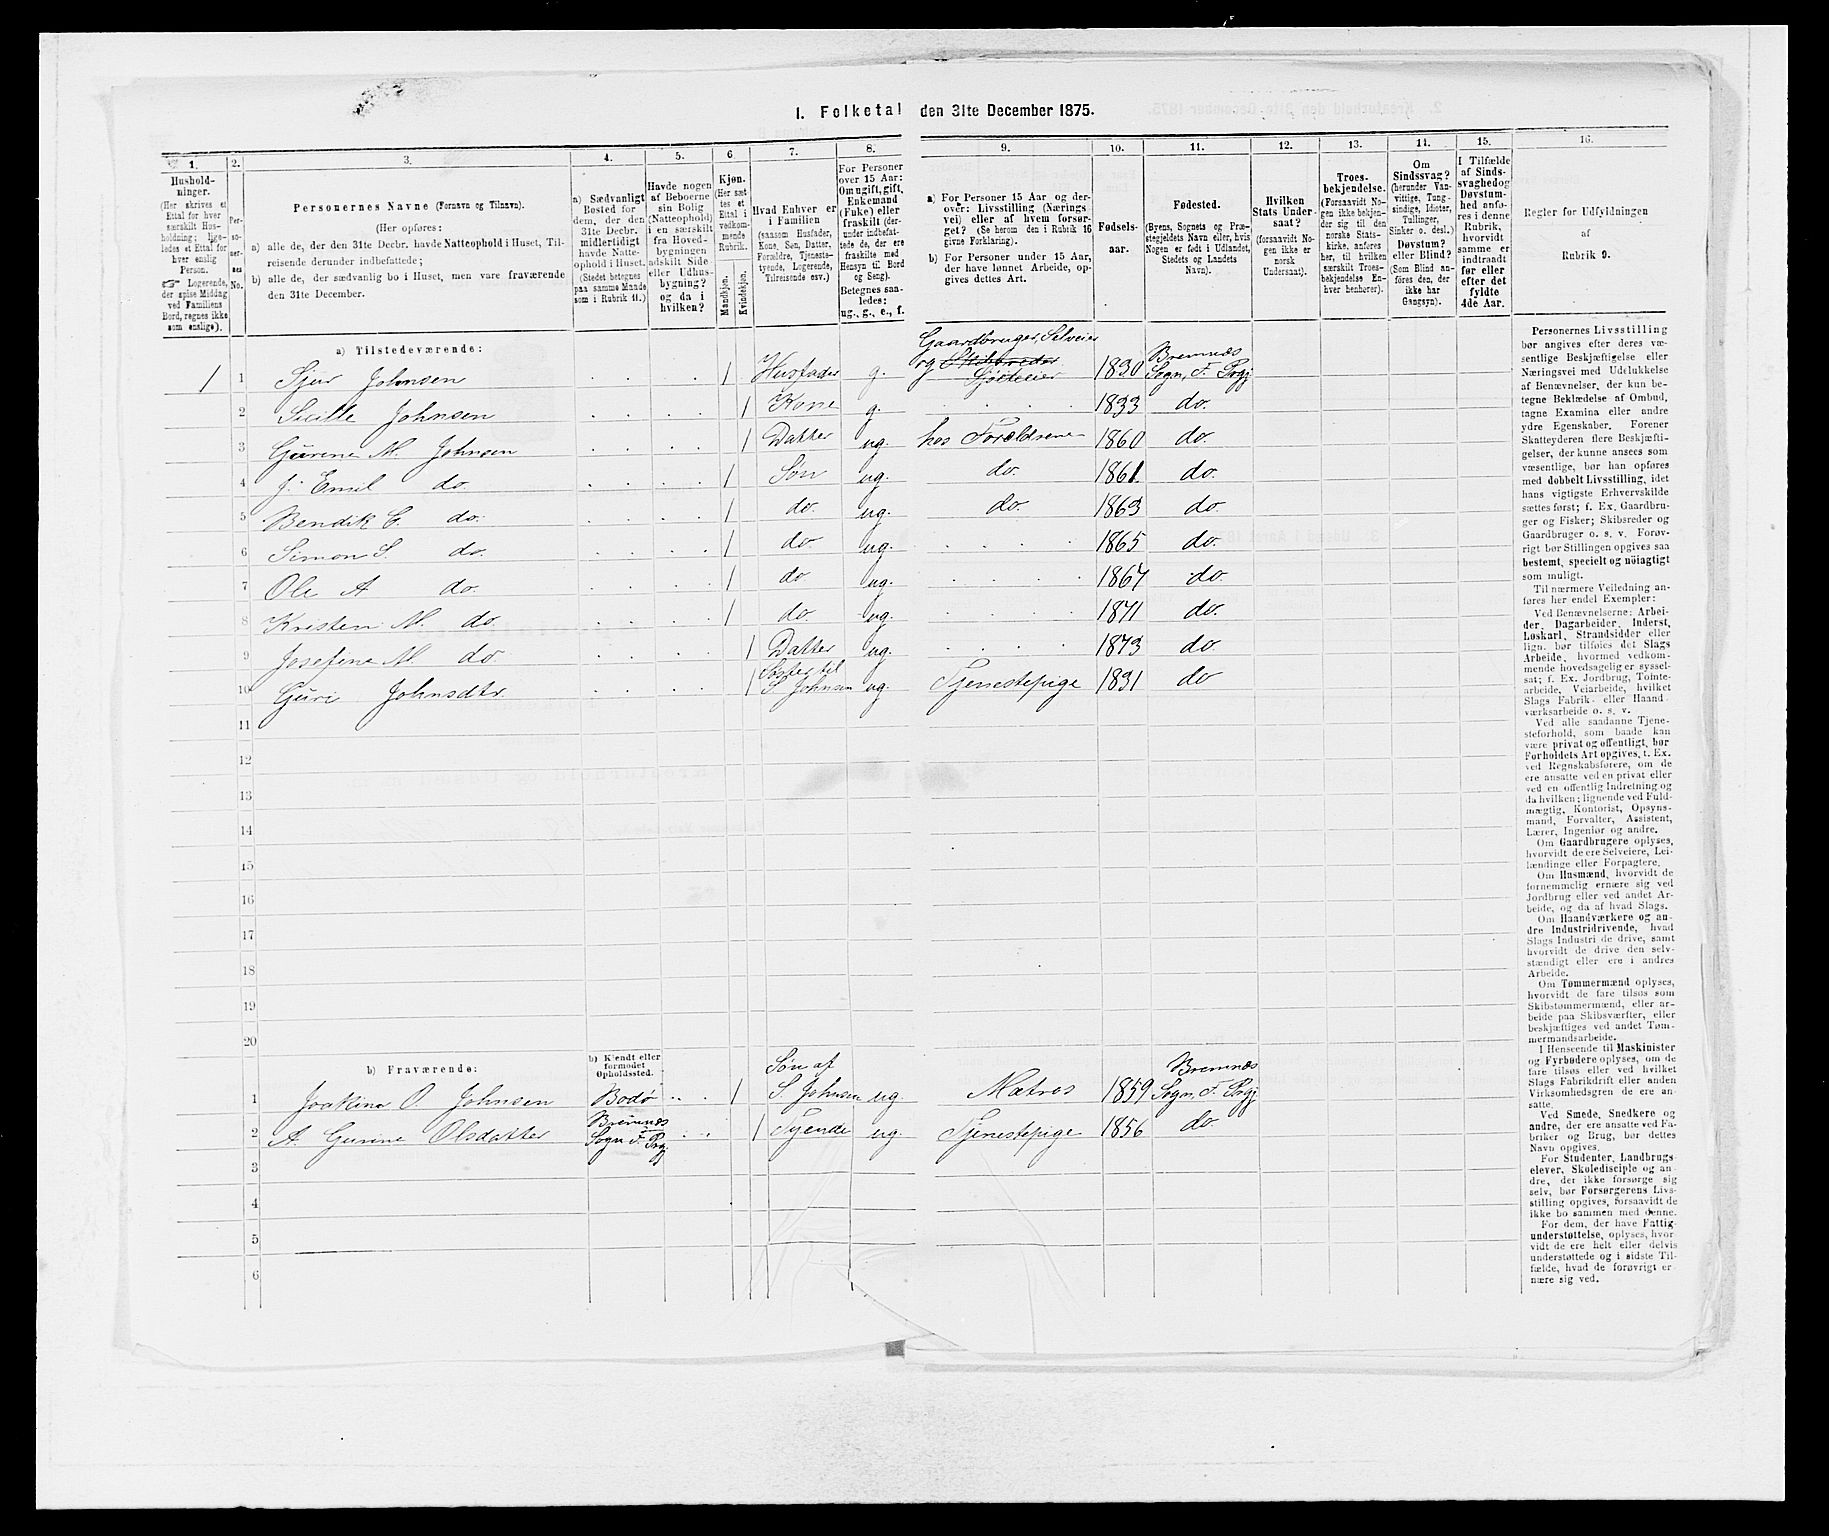 1. Folketal den 31te December 1875.
1.
Hushold-
ninger.
(Her skrives et
Ettal for hver
særskilt Hus-
holdning; lige-
ledes et Ettal for
hver enslig
Person.
☛ Logerende,
der spise Middag
ved Familiens
Bord, regnes ikke
som enslige).
2.
Per-
so-
ner-
nes
No.
3.
Personernes Navne (Fornavn og Tilnavn).
(Her opføres:
a) alle de, der den 31te Decbr. havde Natteophold i Huset, Til-
reisende derunder indbefattede;
b) alle de, der sædvanlig bo i Huset, men vare fraværende
den 31te December.
4.
a) Sædvanligt
Bosted for
dem, der den
31te Decbr.
midlertidigt
havde Natte-
ophold i Huset.
(Stedet betegnes
paa samme Maade
som i Rubrik 11.)
5.
Havde nogen
af Beboerne
sin Bolig
(Natteophold)
i en særskilt
fra Hoved-
bygningen
adskilt Side-
eller Udhus-
bygning?
og da i
hvilken?
6
Kjøn.
(Her sæt-
tes et
Ettal i
vedkom-
mende
Rubrik.
Mandkjøn.
Kvindekjøn.
7.
Hvad Enhver er
i Familien
(saasom Husfader,
Kone, Søn, Datter,
Forældre, Tjeneste-
tyende, Logerende,
Tilreisende osv.)
8.
For Personer
over 15 Aar:
Om ugift, gift,
Enkemand
(Enke) eller
fraskilt (der-
under indbefat-
tede de, der ere
fraskilte med
Hensyn til Bord
og Seng).
Betegnes saa-
ledes:
ug., g., e., f.
9.
a) For Personer 15 Aar og der-
over: Livsstilling (Nærings-
vei) eller af hvem forsør-
get? (Se herom den i Rubrik 16
givne Forklaring).
b) For Personer under 15 Aar,
der have lønnet Arbeide, op-
gives dettes Art.
10.
Fødsels-
aar.
11.
Fødested.
(Byens, Sognets og Præ-
stegjeldets Navn eller, hvis
Nogen er født i Udlandet,
Stedets og Landets
Navn).
12.
Hvilken
Stats Under-
saat?
(forsaavidt No-
gen ikke er
norsk
Undersaat).
13.
Troes-
bekjendelse.
(Forsaavidt No-
gen ikke bekjen-
der sig til den
norske Stats-
kirke, anføres
her, til hvilken
særskilt Troes-
bekjendelse En-
hver henhører).
14.
Om
Sindssvag?
(herunder Van-
vittige, Tung-
sindige, Idioter,
Tullinger,
Sinker o. desl.)
Døvstum?
eller Blind?
(Som Blind an-
føres den, der
ikke har
Gangsyn).
15.
I Tilfælde
af Sinds-
svaghed og
Døvstum-
hed anfø-
res i denne
Rubrik,
hvorvidt
samme er
indtraadt
før eller
efter det
fyldte
4de Aar.
16.
Regler for Udfyldningen
af
Rubrik 9.
a) Tilstedeværende:
1 1 Sjur Johnsen 1 Husfader g. Gaardbruger, Selveier og Skibsreder Sjøteier 1830 Bremnæs Sogn, F. Prgj
2 Sicille Johnsen 1 Kone g. 1833 do.
3 Gurine M. Johnsen 1 Datter ug. hos Forældrene 1860 do.
4 J. Emil do. 1 Søn ug. do. 1861 do.
5 Bendik C. do. 1 do. ug. do. 1863 do.
6 Simon S. do. 1 do. ug. 1865 do.
7 Ole A do. 1 do ug. 1867 do.
8 Kristen M. do. 1 do. ug. 1871 do.
9 Josefine M. do 1 Datter ug. 1873 do.
10 Guri Johnsdtr 1 Søster til S Johnsen ug. Tjenestepige 1831 do
11
12
13
14
15
16
17
18
19
20
b) Fraværende:
b) Kjendt eller
formodet
Opholdssted.
1 Joakim O. Johnsen Bodø 1 Søn af S. Johnsen ug. Matros 1859 Bremnæs Sogn, F. Prgj.
2 A. Gurine Olsdatter Bremnæs Sogn F. Prgj. 1 Tyende ug. Tjenestepige 1856 do
3
4
5
6
Personernes Livsstilling
bør angives efter deres væ-
sentlige Beskjæftigelse eller
Næringsvei med Udelukkelse
af Benævnelser, der kun be-
tegne Beklædelse af Ombud,
tagne Examina eller andre
ydre Egenskaber. Forener
Skatteyderen flere Beskjæfti-
gelser, der kunne ansees som
væsentlige, bør han opføres
med dobbelt Livsstilling, idet
hans vigtigste Erhvervskilde
sættes først; f. Ex. Gaardbru-
ger og Fisker; Skibsreder og
Gaardbruger o. s. v. Forøv-
rigt bør Stillingen opgives saa
bestemt, specielt og nøiagtigt
som muligt.
Til nærmere Veiledning an-
føres her endel Exempler:
Ved Benævnelserne: Arbei-
der, Dagarbeider, Inderst,
Løskarl, Strandsidder eller
lign. bør tilføies det Slags
Arbeide, hvormed vedkom-
mende hovedsagelig er syssel-
sat; f. Ex. Jordbrug, Tomte-
arbeide, Veiarbeide, hvilket
Slags Fabrik- eller Haand-
værksarbeide o. s. v.
Ved alle saadanne Tjene-
steforhold, som baade kan
være privat og offentligt, bør
Forholdets Art opgives, t. Ex.
ved Regnskabsførere, om de
ere ansatte ved en privat eller
ved en offentlig Indretning og
da hvilken; lignende ved Fuld-
mægtig, Kontorist, Opsyns-
mand, Forvalter, Assistent,
Lærer, Ingeniør og andre.
Om Gaardbrugere oplyses,
hvorvidt de ere Selveiere, Lei-
lændinge eller Forpagtere.
Om Husmænd, hvorvidt de
fornemmelig ernære sig ved
Jordbrug eller ved andet Ar-
beide, og da af hvad Slags.
Om Haandværkere og an-
dre Industridrivende, hvad
Slags Industri de drive, samt
hvorvidt de drive den selv-
stændigt eller ere i andres
Arbeide.
Om Tømmermænd oplyses,
hvorvidt de fare tilsøs som
Skibstømmermænd, eller ar-
beide paa Skibsværfter, eller
beskjæftiges ved andet Tøm-
mermandsarbeide.
I Henseende til Maskinister
og Fyrbødere oplyses, om de
fare tilsøs eller ved hvilket
Slags Fabrikdrift eller anden
Virksomhedsgren de ere an-
satte.
Ved Smede, Snedkere og
andre, der ere ansatte ved Fa-
briker og Brug, bør dettes
Navn opgives.
For Studenter, Landbrugs-
elever, Skoledisciple og an-
dre, der ikke forsørge sig
selv, bør Forsørgerens Livs-
stilling opgives, forsaavidt de
ikke bo sammen med denne.
For dem, der have Fattig-
understøttelse, oplyses, hvor-
vidt de ere helt eller delvis
understøttede og i sidste Til-
fælde, hvad de forøvrigt er-
nære sig ved.